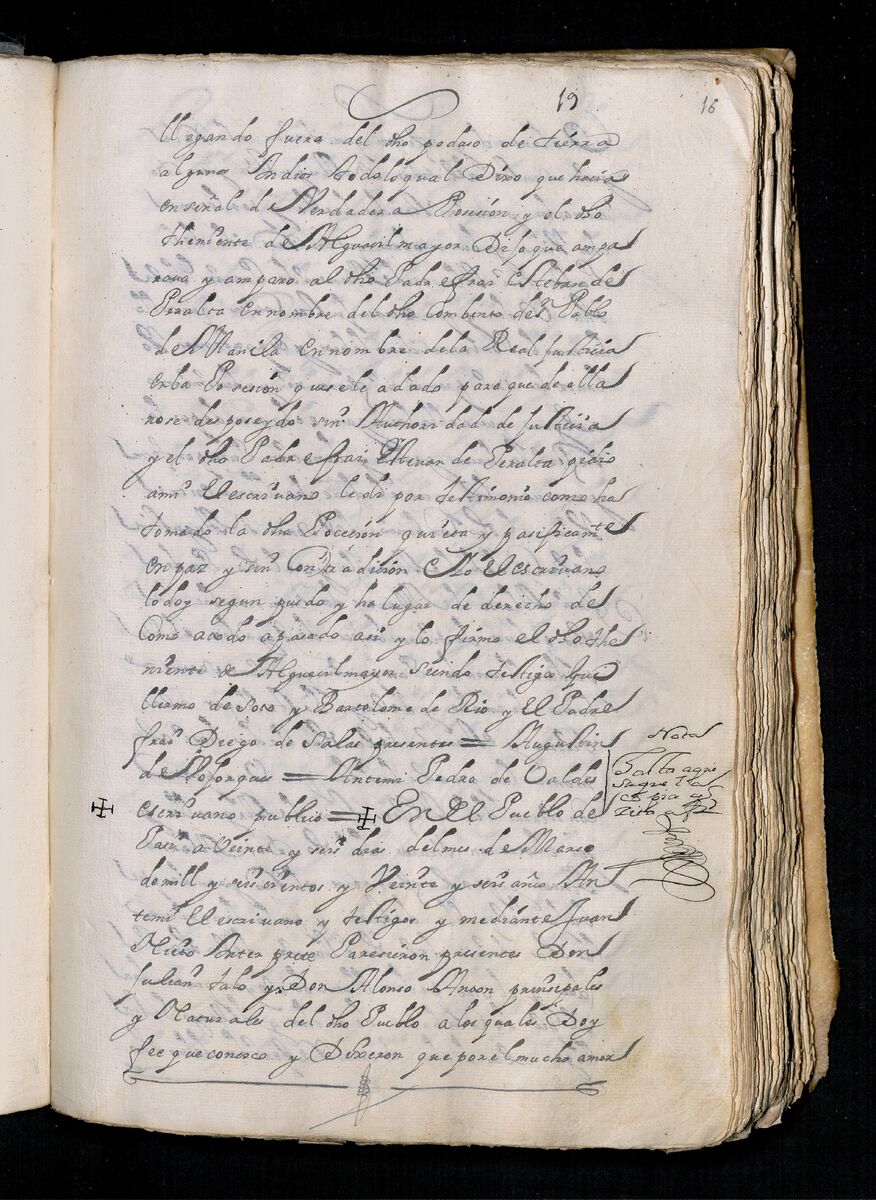 19
16
llegando fuera del dho pedaso de tierra
algunos Yndios todo lo qual Dixo que hacia
en señal de Verdadera Posesion y el dho
theniente de Alguacil mayor Dijo que ampa
raua y amparo al dho Padre frai Esteban de
Peralta en nombre del dho Combento de Sn Pablo
de Manila en nombre de la Real Justicia
en la Posesion que se le a dado para que de ella
no se desposeydo sin Authoridad de Justicia
y el dho Padre frai Esteuan de Peralta pidio
a mi el escriuano le de por testimonio como ha
tomado la dha Poccesion quieta y pasificamte
en paz y sin Contradicion E Yo el escriuano
lo doy segun puedo y ha lugar de derecho de
Como a todo a pasado asi y lo firmo el dho the
niente de Alguacil mayor siendo testigos Gui
llermo de Soto y Bartolome de Rio y El Padre
frai Diego de Salas presentes = Augustin
de = Ante mi Pedro de Valdes
escriuano publico = En El Pueblo de
Pasi a Veinte y seis dias del mes de Março
de mill y seiscientos y Veinte y seis años An
te mi el escriuano y testigos y mediante Juan
Nieto Ynterprete Paresieron presentes Don
Julian Talo y Don Alonso principales
y Naturales del dho Pueblo a los quales Doy
fee que conosco y Dixeron que por el mucho amor
Nota
Falta aqui